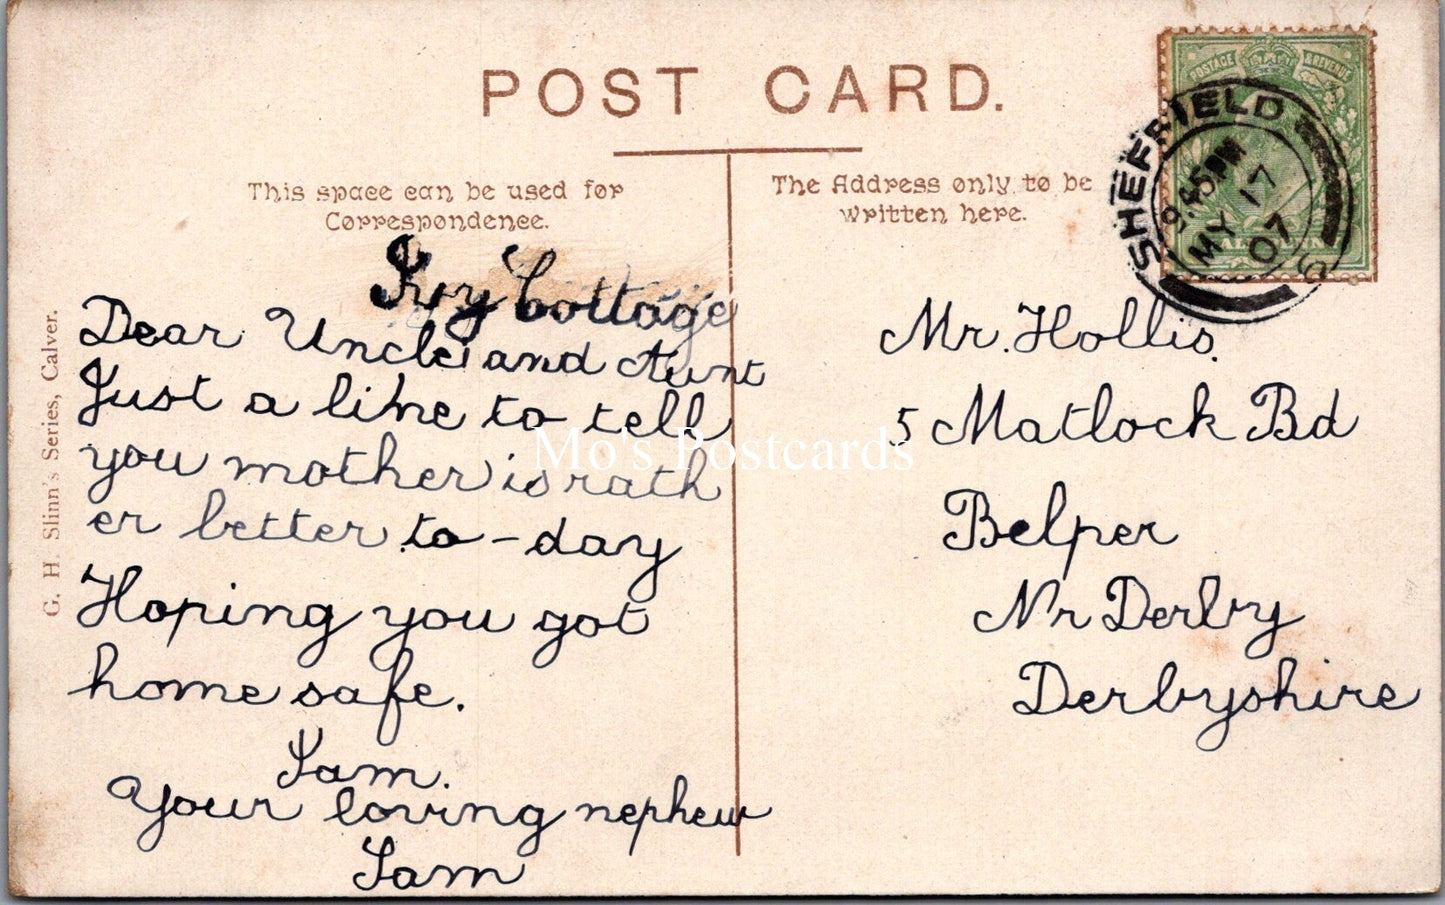 POST CARD.
This space can be used for
Correspondence.
The Address only to be
written here.
POSTAGE & REVENUE
SHEFFIELD
9.45PM
MY 17
07
Ivy Cottage
Dear Uncle and Aunt
Just a line to tell
you mother is rath
er better to-day
Hoping you got
home safe.
I am.
Your loving nephew
Sam
Mr. Hollis.
5 Matlock Rd
Belper
Nr Derby
Derbyshire
G. H. Slinn's Series, Calver.
Mo's Postcards